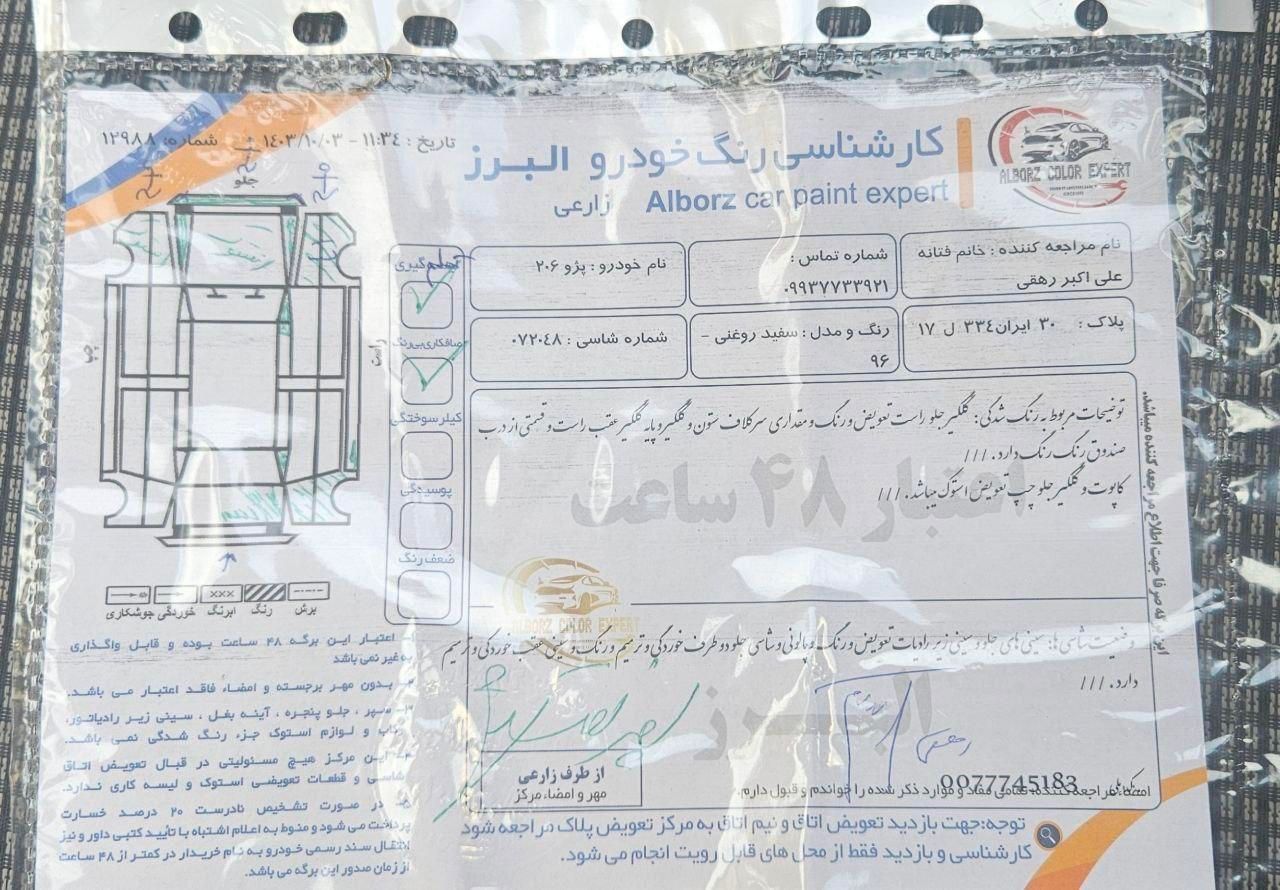 کارشناسی رنگ خودرو البرز
Alborz car paint expert زارعی
ALBORZ COLOR EXPERT
تاریخ : ۱۱:۳۴ - ۱۴۰۳/۱۰/۰۳ شماره: ۱۲۹۸۸
نام مراجعه کننده : خانم فتانه
علی اکبر رهقی
شماره تماس :
۰۹۹۳۷۷۳۳۹۲۱
نام خودرو : پژو ۲۰۶
پلاک : ۳۰ ایران ۳۳٤ ل ۱۷
رنگ و مدل : سفید روغنی -
۹۶
شماره شاسی : ۰۷۲۰٤۸
توضیحات مربوط به رنگ شدگی: گلگیر جلو راست تعویض و رنگ و مقداری سرکلاف ستون و گلگیر و پایه گلگیر عقب راست و قسمتی از درب
صندوق رنگ رنگ دارد. ///
کاپوت و گلگیر جلو چپ تعویض استوک میباشد. ///
اعتبار ۴۸ ساعت
وضعیت شاسی ها: سینی های جلو و سینی زیر رادیات تعویض و رنگ و پالونی و شاسی جلو دو طرف خوردگی و ترمیم و رنگ و سینی عقب خوردگی و ترمیم
دارد. ///
البرز
ALBORZ COLOR EXPERT
از طرف زارعی
مهر و امضاء مرکز
کد ملی 0077745183
امضاء مراجعه کننده تمامی مفاد و موارد ذکر شده را خواندم و قبول دارم.
توجه: جهت بازدید تعویض اتاق و نیم اتاق به مرکز تعویض پلاک مراجعه شود
کارشناسی و بازدید فقط از محل های قابل رویت انجام می شود.
این برگه صرفا جهت اطلاع مراجعه کننده میباشد.
جلو
چپ
راست
صافکاری بی رنگ
کیلر سوختگی
پوسیدگی
ضعف رنگ
برش
رنگ
ابرنگ
خوردگی
جوشکاری
۱- اعتبار این برگه ۴۸ ساعت بوده و قابل واگذاری
به غیر نمی باشد
۲- بدون مهر برجسته و امضاء فاقد اعتبار می باشد.
۳- سپر ، جلو پنجره ، آینه بغل ، سینی زیر رادیاتور،
رکاب و لوازم استوک جزء رنگ شدگی نمی باشد.
۴- این مرکز هیچ مسئولیتی در قبال تعویض اتاق
شاسی و قطعات تعویضی استوک و لیسه کاری ندارد.
۵- در صورت تشخیص نادرست ۲۰ درصد خسارت
پرداخت می شود و منوط به اعلام اشتباه با تأیید کتبی داور و نیز
انتقال سند رسمی خودرو به نام خریدار در کمتر از ۴۸ ساعت
از زمان صدور این برگه می باشد.